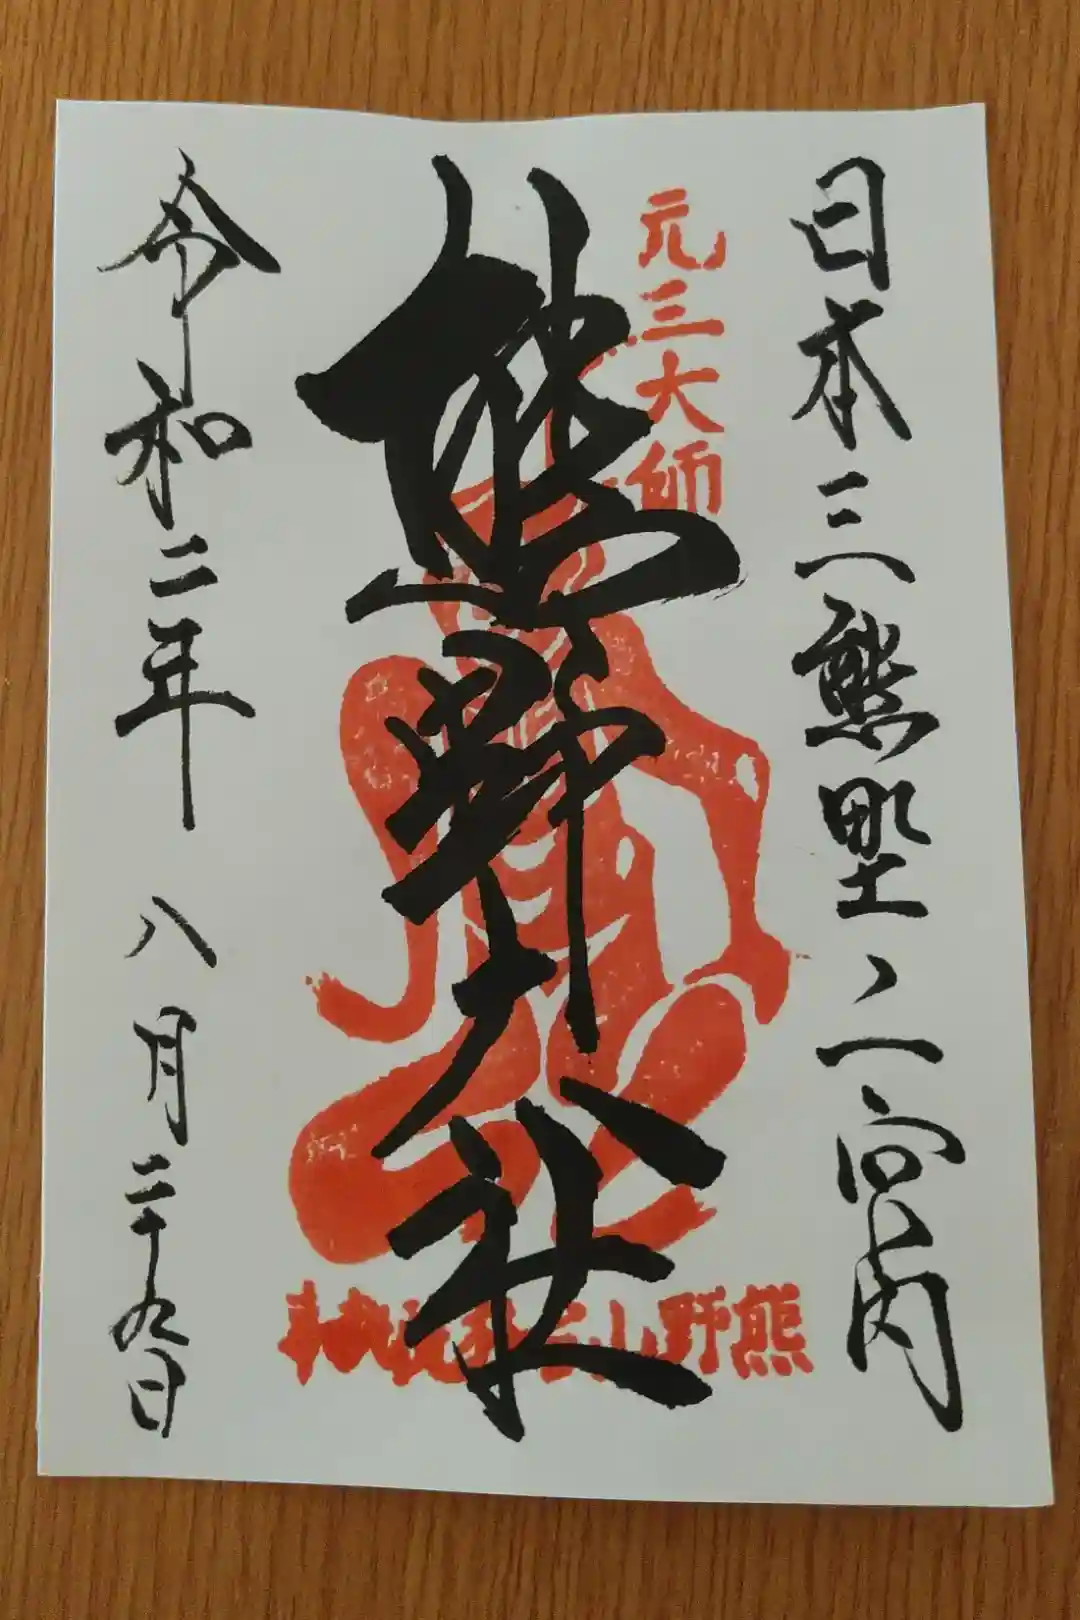 日本三熊野ノ二宮内
元三大師
熊野大社
熊野山
令和二年八月二十九日